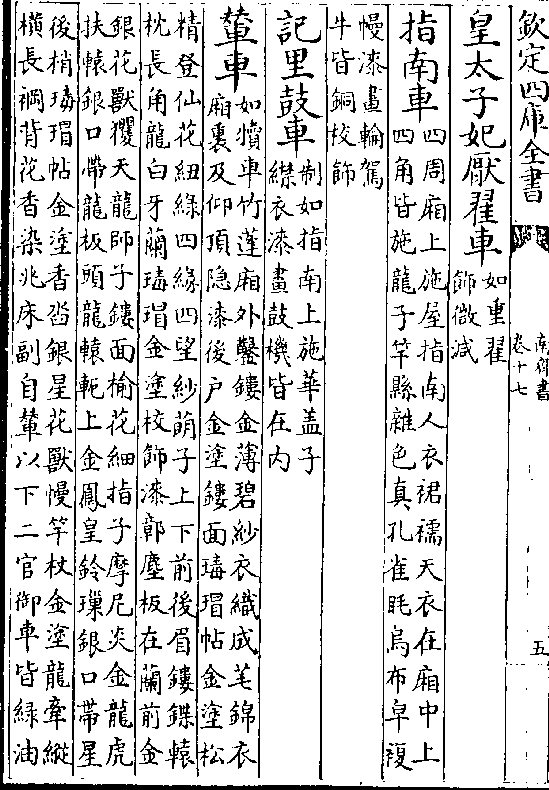 欽定四庫全書
南齊書
卷十七
五
皇太子妃厭翟車
如重翟
飾微減
指南車
四周廂上施屋指南人衣裙襦天衣在廂中上
四角皆施龍子竿縣雜色真孔雀眊烏布皁複
幔漆畫輪駕
牛皆銅校飾
記里鼓車
制如指南上施華蓋子
䌨衣漆畫鼓機皆在内
輦車
如犢車竹蓬廂外鑿鏤金薄碧紗衣織成芼錦衣
廂裏及仰頂隐漆後户金塗鏤面瑇瑁帖金塗松
精登仙花紐緑四緣四望紗萌子上下前後眉鏤鍱轅
枕長角龍白牙蘭瑇瑁金塗校飾漆鄣塵板在蘭前金
銀花獸玃天龍師子鏤面榆花細指子摩尼炎金龍虎
扶轅銀口帶龍板頭龍轅軛上金鳳皇鈴璅銀口帶星
後梢瑇瑁帖金塗香沓銀星花獸幔竿杖金塗龍牽縱
橫長襉背花香染兆床副自輦以下二宫御車皆緑油